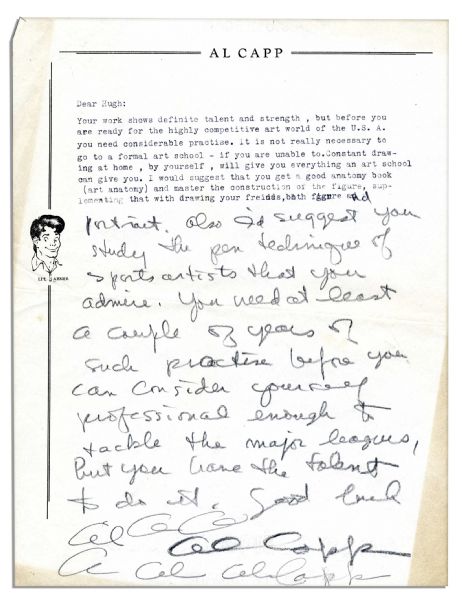 AL CAPP
Dear Hugh:
Your work shows definite talent and strength , but before you
are ready for the highly competitive art world of the U.S. A.
you need considerable practise. it is not really necessary to
go to a formal art school - if you are unable to.Constant draw-
ing at home , by yourself , will give you everything an art school
can give you. I would suggest that you get a good anatomy book
(art anatomy) and master the construction of the figure, sup-
lementing that with drawing your freinds,both figure and
portrait. also I'd suggest you
study the pen technique of
sports artists that you
admire. You need at least
a couple of years of
such practise before you
can consider yourself
professional enough to
tackle the major leagues,
but you have the talent
to do it. Good luck
LI'L ABNER
Al Capp
Al Capp
Al Al Capp